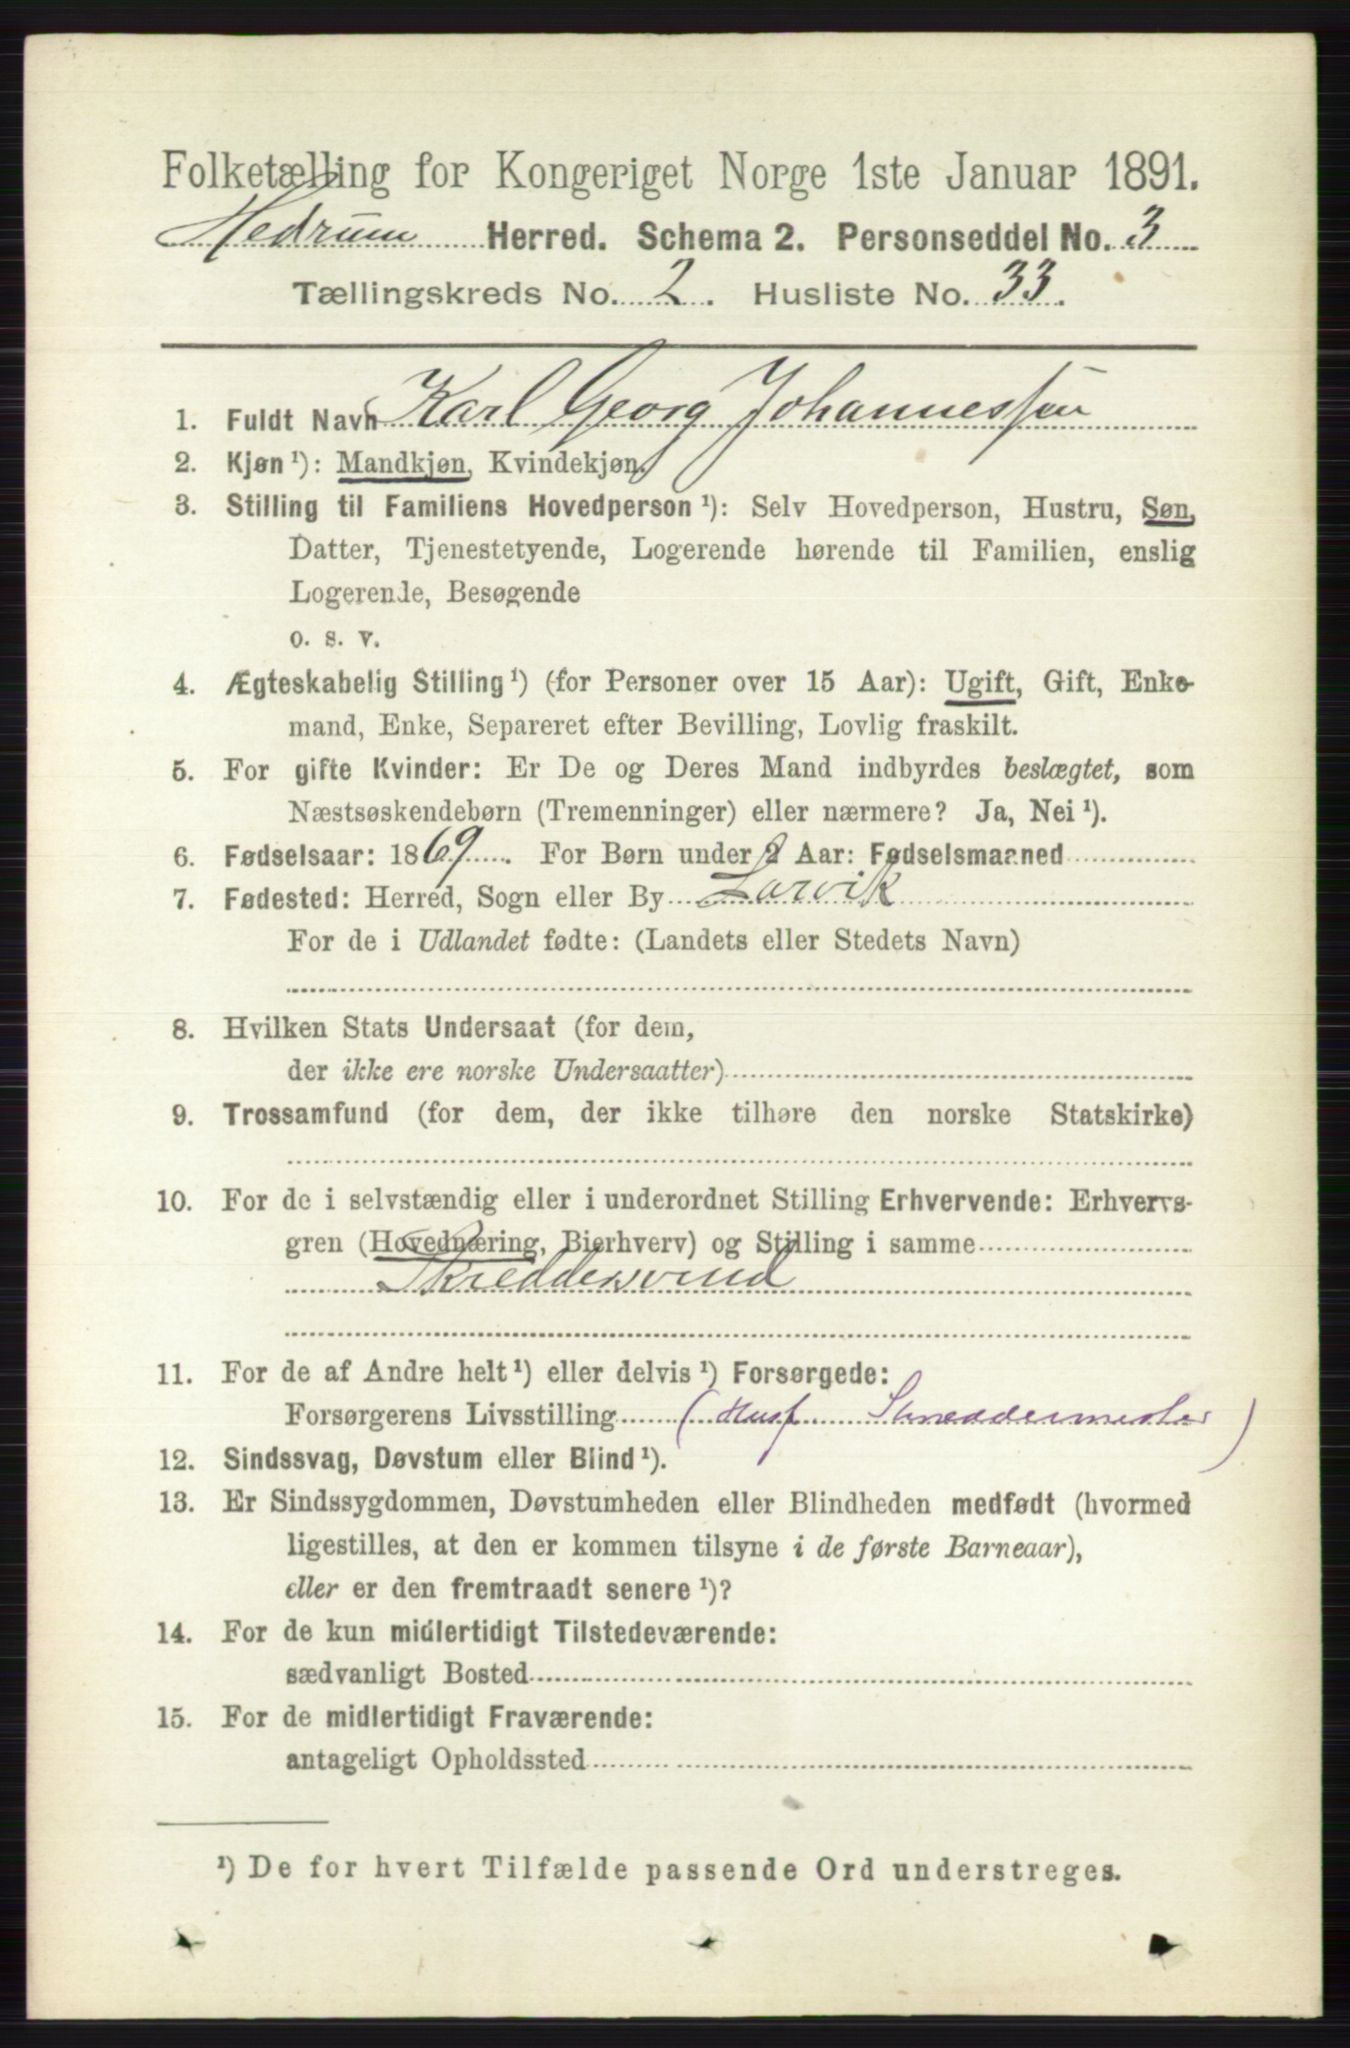 Folketælling for Kongeriget Norge 1ste Januar 1891.
Hedrum Herred. Schema 2. Personseddel No. 3
Tællingskreds No. 2. Husliste No. 33.
1. Fuldt Navn Karl Georg Johannessen
2. Kjøn¹): Mandkjøn, Kvindekjøn.
3. Stilling til Familiens Hovedperson¹): Selv Hovedperson, Hustru, Søn,
Datter, Tjenestetyende, Logerende hørende til Familien, enslig
Logerende, Besøgende
o. s. v.
4. Ægteskabelig Stilling¹) (for Personer over 15 Aar): Ugift, Gift, Enke-
mand, Enke, Separeret efter Bevilling, Lovlig fraskilt.
5. For gifte Kvinder: Er De og Deres Mand indbyrdes beslægtet, som
Næstsøskendebørn (Tremenninger) eller nærmere? Ja, Nei¹).
6. Fødselsaar: 1869. For Børn under 2 Aar: Fødselsmaaned
7. Fødested: Herred, Sogn eller By Larvik
For de i Udlandet fødte: (Landets eller Stedets Navn)
8. Hvilken Stats Undersaat (for dem,
der ikke ere norske Undersaatter)
9. Trossamfund (for dem, der ikke tilhøre den norske Statskirke)
10. For de i selvstændig eller i underordnet Stilling Erhvervende: Erhvervs-
gren (Hovednæring, Bierhverv) og Stilling i samme
Skreddersvend
11. For de af Andre helt¹) eller delvis¹) Forsørgede:
Forsørgerens Livsstilling (Husf Skreddermester)
12. Sindssvag, Døvstum eller Blind¹).
13. Er Sindssygdommen, Døvstumheden eller Blindheden medfødt (hvormed
ligestilles, at den er kommen tilsyne i de første Barneaar),
eller er den fremtraadt senere¹)?
14. For de kun midlertidigt Tilstedeværende:
sædvanligt Bosted
15. For de midlertidigt Fraværende:
antageligt Opholdssted
¹) De for hvert Tilfælde passende Ord understreges.